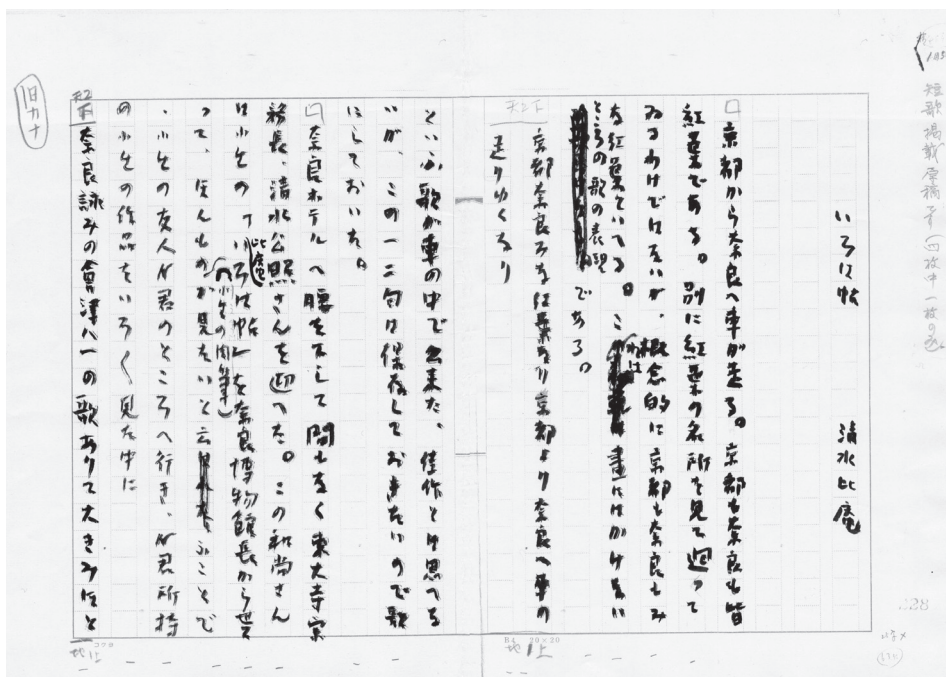 短歌掲載原稿
いろは帖
清水比庵
□京都から奈良へ車が走る。京都も奈良も皆
紅葉である。別に紅葉の名所を見て廻つて
ゐるわけではないが、概念的に京都も奈良もみ
な紅葉してゐる。これは畫にはかけない
ところの歌の表現である。
天2下
京都奈良みな紅葉なり京都より奈良へ車の
走りゆくなり
といふ歌が車の中で出来た。佳作とは思へな
いが、この一二句は保存しておきたいので歌
にしておいた。
□奈良ホテルへ腰を下して間もなく東大寺宗
務長、清水公照さんを迎へた。この和尚さん
は小生の「比庵いろは帖」(小生の肉筆)を奈良博物館長から貰
つて、ほんものが見たいと云ふことで
、小生の友人M君のところへ行き、M君所持
の小生の作品をいろ〱見た中に
天2下
奈良詠みの會津八一の歌ありて大きみほと
旧カナ
地1上
B4 20×20
地1上